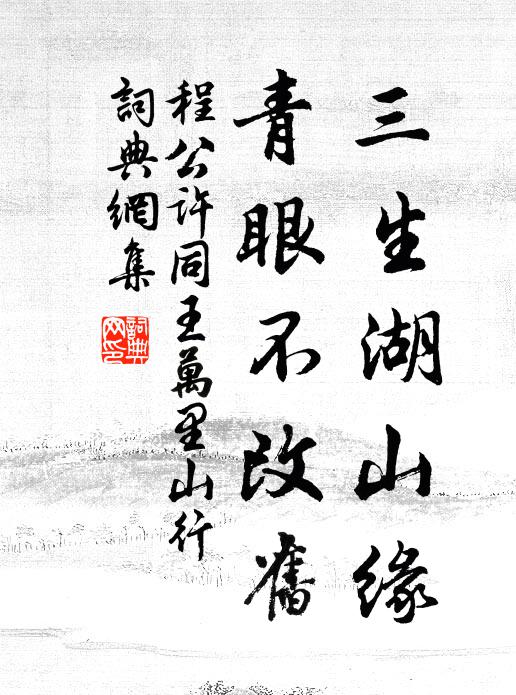 三生湖山緣
青眼不改舊
程公許同王萬里山行
詞典網集
詞典
网印